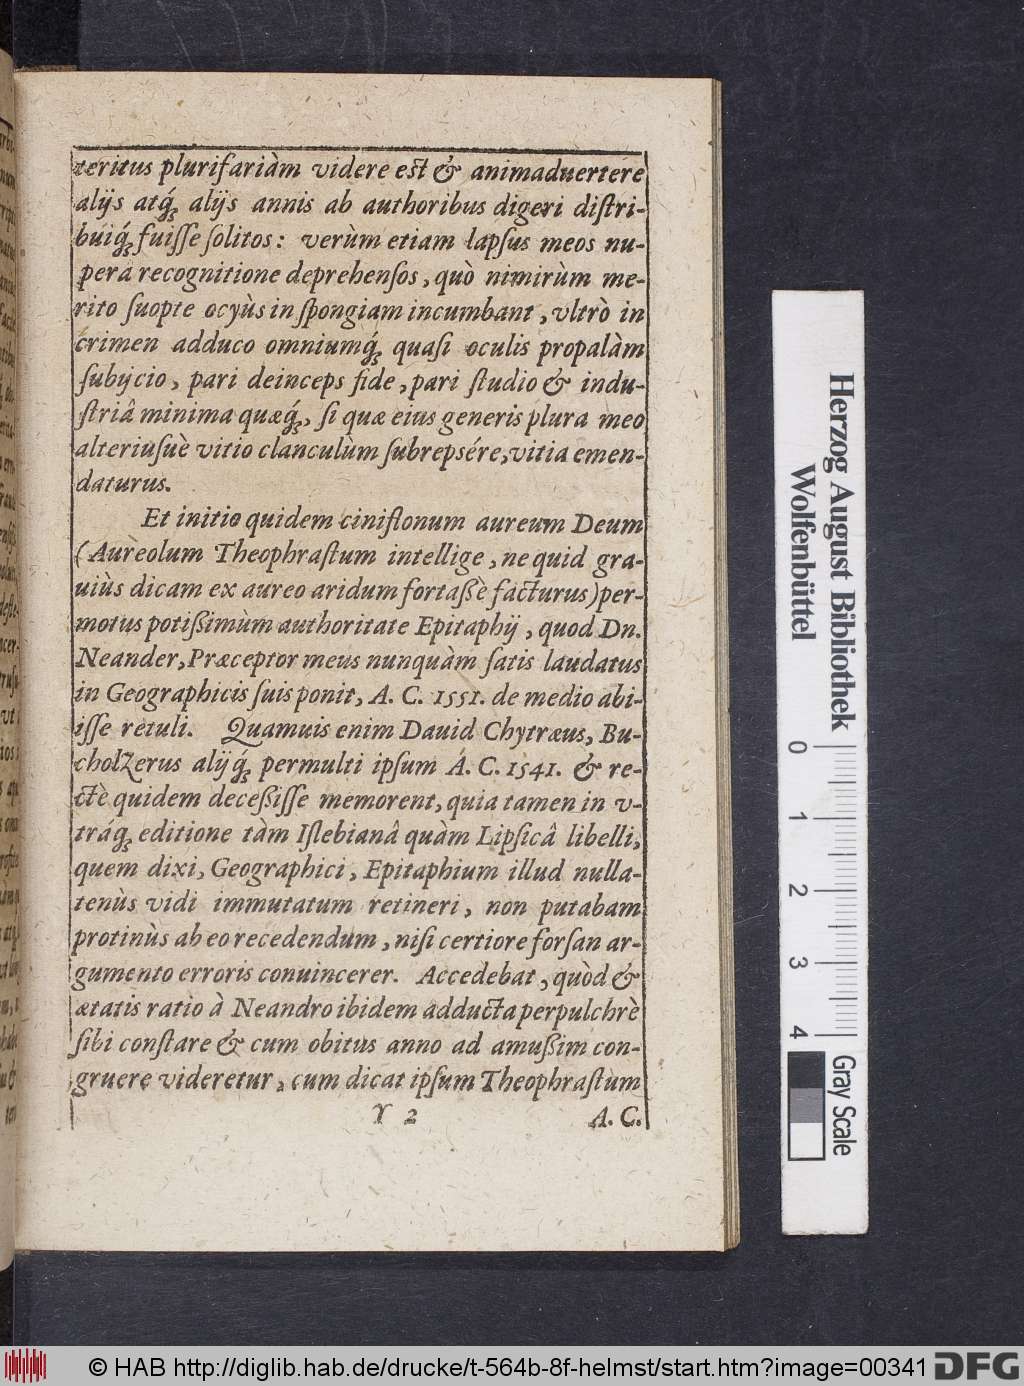 teritus plurifariàm videre est & animaduertere
alijs atq́; alijs annis ab authoribus digeri distri-
buiq́; fuiſſe ſolitos: verùm etiam lapſus meos nu-
pera recognitione deprehenſos, quò nimirùm me-
rito ſuopte ocyùs in ſpongiam incumbant, vltrò in
crimen adduco omniumq́; quaſi oculis propalàm
ſubijcio, pari deinceps fide, pari ſtudio & indu-
ſtriâ minima quæq́;, ſi quæ eius generis plura meo
alteriuſuè vitio clanculùm ſubrepsére, vitia emen-
daturus.
Et initio quidem ciniflonum aureum Deum
(Aureolum Theophraſtum intellige, ne quid gra-
uiùs dicam ex aureo aridum fortaßè facturus) per-
motus potißimùm authoritate Epitaphij, quod Dn.
Neander, Præceptor meus nunquàm ſatis laudatus
in Geographicis ſuis ponit, A. C. 1551. de medio abi-
iſſe retuli. Quamuis enim Dauid Chytræus, Bu-
cholzerus alijq́; permulti ipſum A. C. 1541. & re-
ctè quidem deceßiſſe memorent, quia tamen in v-
tráq; editione tàm Iſlebianâ quàm Lipſicâ libelli,
quem dixi, Geographici, Epitaphium illud nulla-
tenùs vidi immutatum retineri, non putabam
protinùs ab eo recedendum, niſi certiore forſan ar-
gumento erroris conuincerer. Accedebat, quòd &
ætatis ratio à Neandro ibidem adducta perpulchrè
ſibi conſtare & cum obitus anno ad amußim con-
gruere videretur, cum dicat ipſum Theophraſtum
Y 2 A. C.
Herzog August Bibliothek
Wolfenbüttel
0 1 2 3 4
Gray Scale
© HAB http://diglib.hab.de/drucke/t-564b-8f-helmst/start.htm?image=00341
DFG